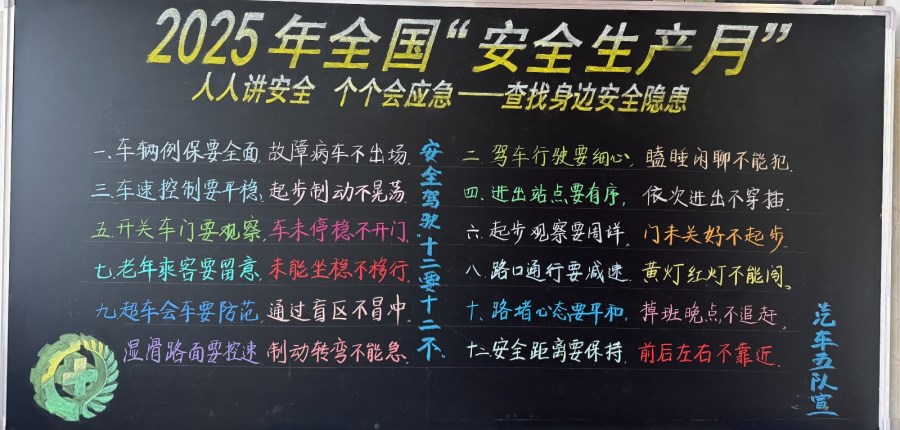 2025年全国“安全生产月”
人人讲安全 个个会应急——查找身边安全隐患
安全驾驶十二要十二不
一.车辆例保要全面,故障病车不出场.
二.驾车行驶要细心,瞌睡闲聊不能犯.
三.车速控制要平稳,起步制动不晃荡.
四.进出站点要有序,依次进出不穿插.
五.开关车门要观察,车未停稳不开门.
六.起步观察要周详,门未关好不起步.
七.老年乘客要留意,未能坐稳不移行.
八.路口通行要减速,黄灯红灯不能闯.
九.超车会车要防范,通过盲区不冒冲.
十.路堵心态要平和,掉班晚点不追赶.
湿滑路面要控速 制动转弯不能急.
十二.安全距离要保持,前后左右不靠近.
汽车五队宣